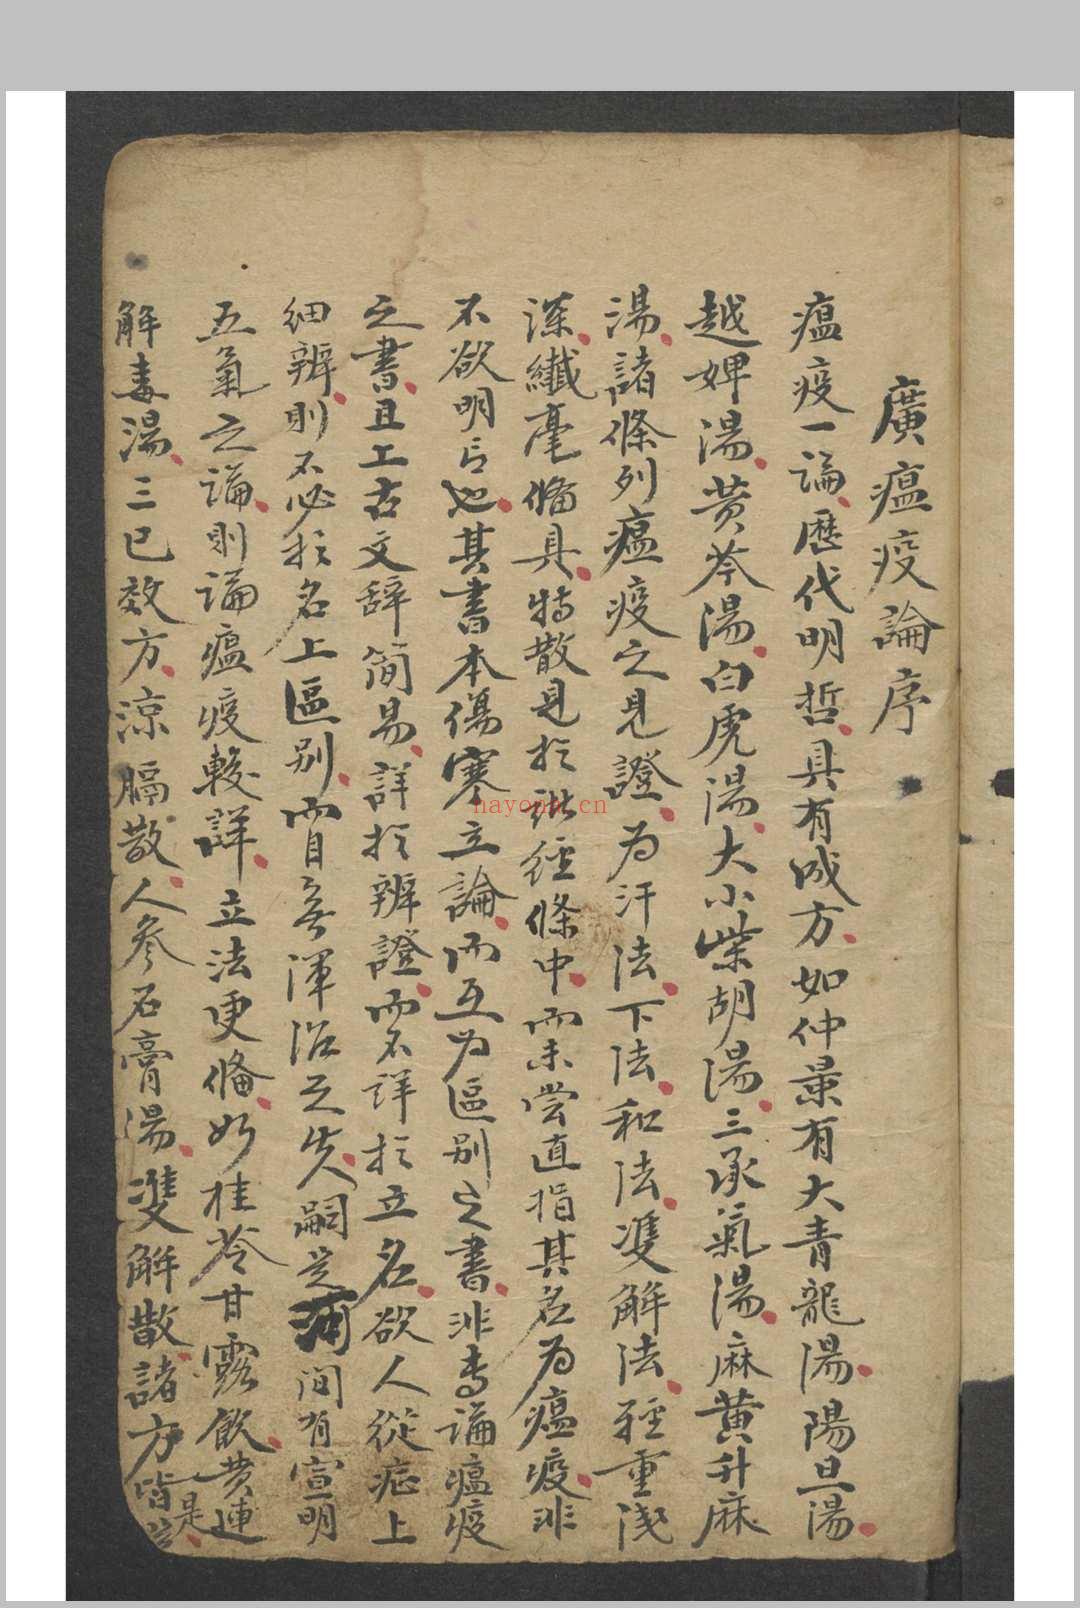 廣瘟疫論序
瘟疫一論歷代明哲具有成方如仲景有大青龍湯陽旦湯
越婢湯黄芩湯白虎湯大小柴胡湯三承氣湯麻黄升麻
湯諸條列瘟疫之見證為汗法下法和法雙解法輕重浅
深纖毫備具特散見於諸經條中而未嘗直指其名為瘟疫非
不欲明言也其書本傷寒立論而互為區别之書非専論瘟疫
之書且工古文辭简易詳於辨證而不详於立名欲人從症上
细辨則不必於名上區别而自無渾治之失嗣是間有宣明
五氣之論則論瘟疫較詳立法更備如桂苓甘露飲黄連
解毒湯三已效方凉膈散人參石膏湯雙解散諸方皆是
hayopa.cn